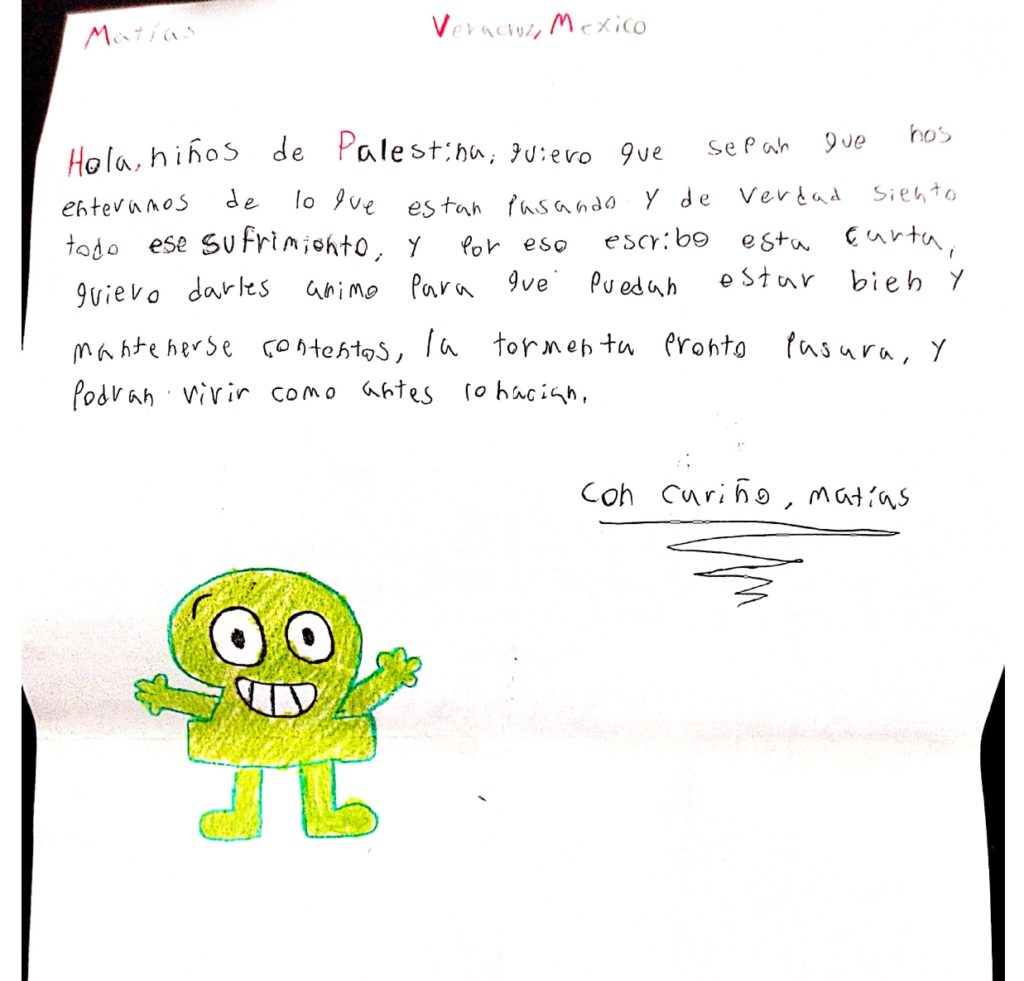 Matías Veracruz, Mexico
Hola, niños de Palestina, quiero que sepan que nos
enteramos de lo que estan pasando y de verdad siento
todo ese sufrimiento, y por eso escribo esta carta,
quiero darles animo para que puedan estar bien y
mantenerse contentos, la tormenta pronto pasara, y
podran vivir como antes lo hacian.
con cariño, Matías